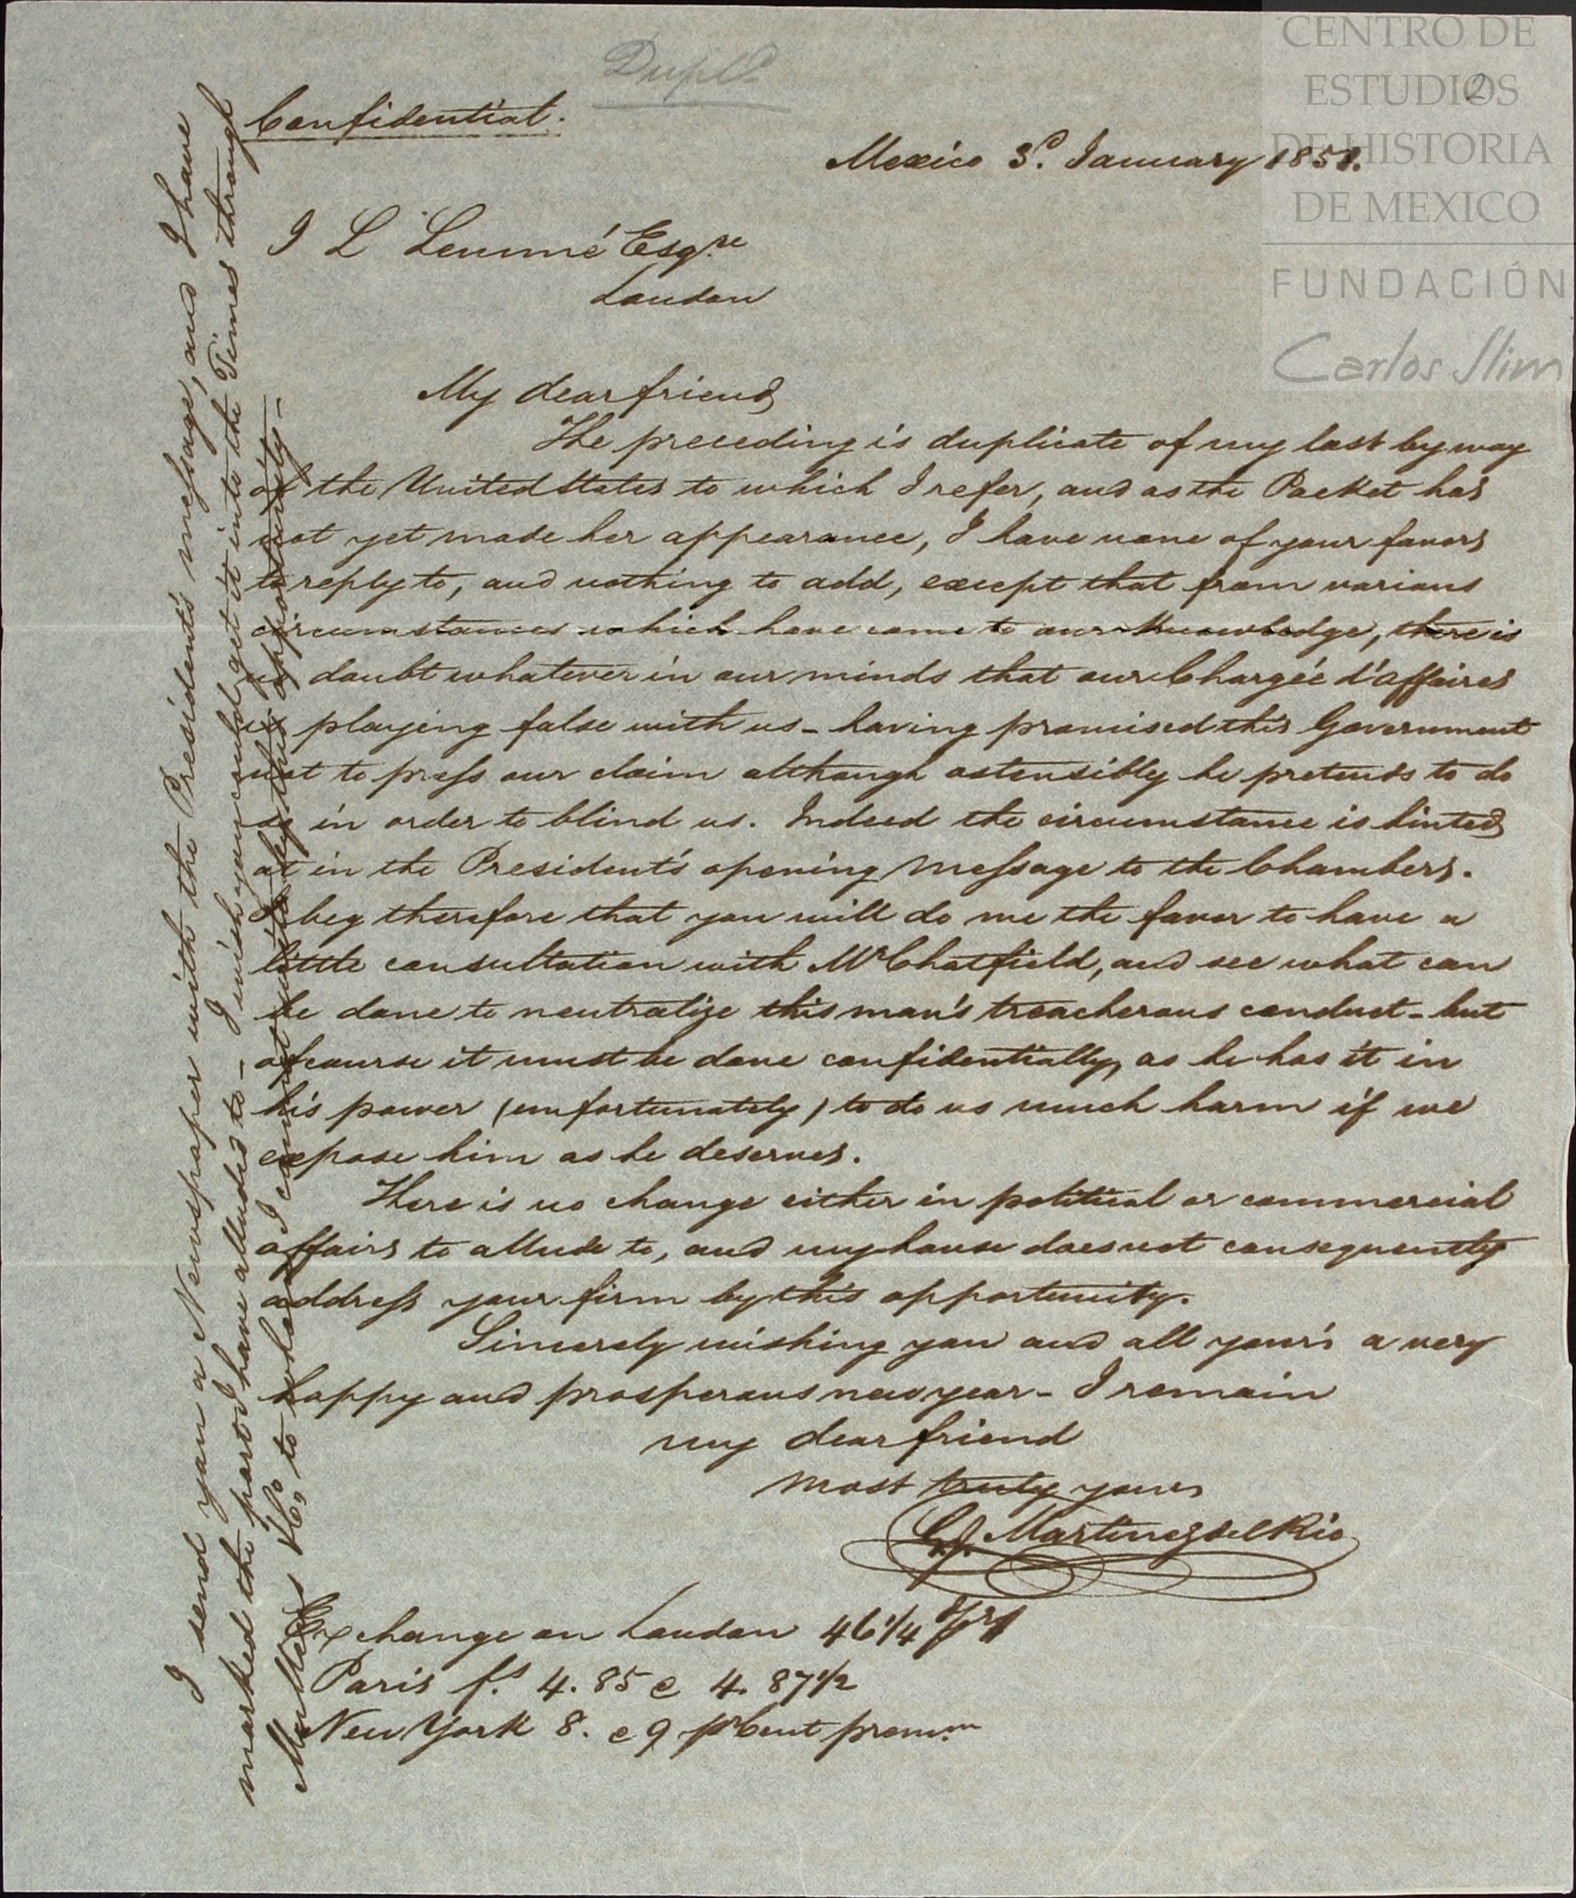 Dupl.
Confidential.
2
Mexico 3d. January 1851.
J L Lemmé Esqre
London
My dear friend
The preceding is duplicate of my last by way
of the United States to which I refer, and as the Packet has
not yet made her appearance, I have none of your favors
to reply to, and nothing to add, except that from various
circumstances which have come to our knowledge, there is
no doubt whatever in our minds that our Chargée d'affaires
is playing false with us - having promised this Government
not to press our claim although ostensibly he pretends to do
so in order to blind us. Indeed the circumstance is hinted
at in the President's opening Message to the Chambers.
I beg therefore that you will do me the favor to have a
little consultation with Mr Chatfield, and see what can
be done to neutralize this man's treacherous conduct - but
of course it must be done confidentially, as he has it in
his power (unfortunately) to do us much harm if we
expose him as he deserves.
There is no change either in political or commercial
affairs to allude to, and my house does not consequently
address your firm by this opportunity.
Sincerely wishing you and all your's a very
happy and prosperous new year - I remain
my dear friend
most truly yours
G. J. Martinez del Rio
Exchange on London 46 1/4
Paris fs. 4.85 @ 4.87 1/2
New York 8. @ 9 pr Cent premm
I send you a Newspaper with the President's message, and I have
marked the part I have alluded to - I wish you could get it into the Times through
Mess &Co, to whom I cannot write by this opportunity -
CENTRO DE
ESTUDIOS
DE HISTORIA
DE MEXICO
FUNDACIÓN
Carlos Slim